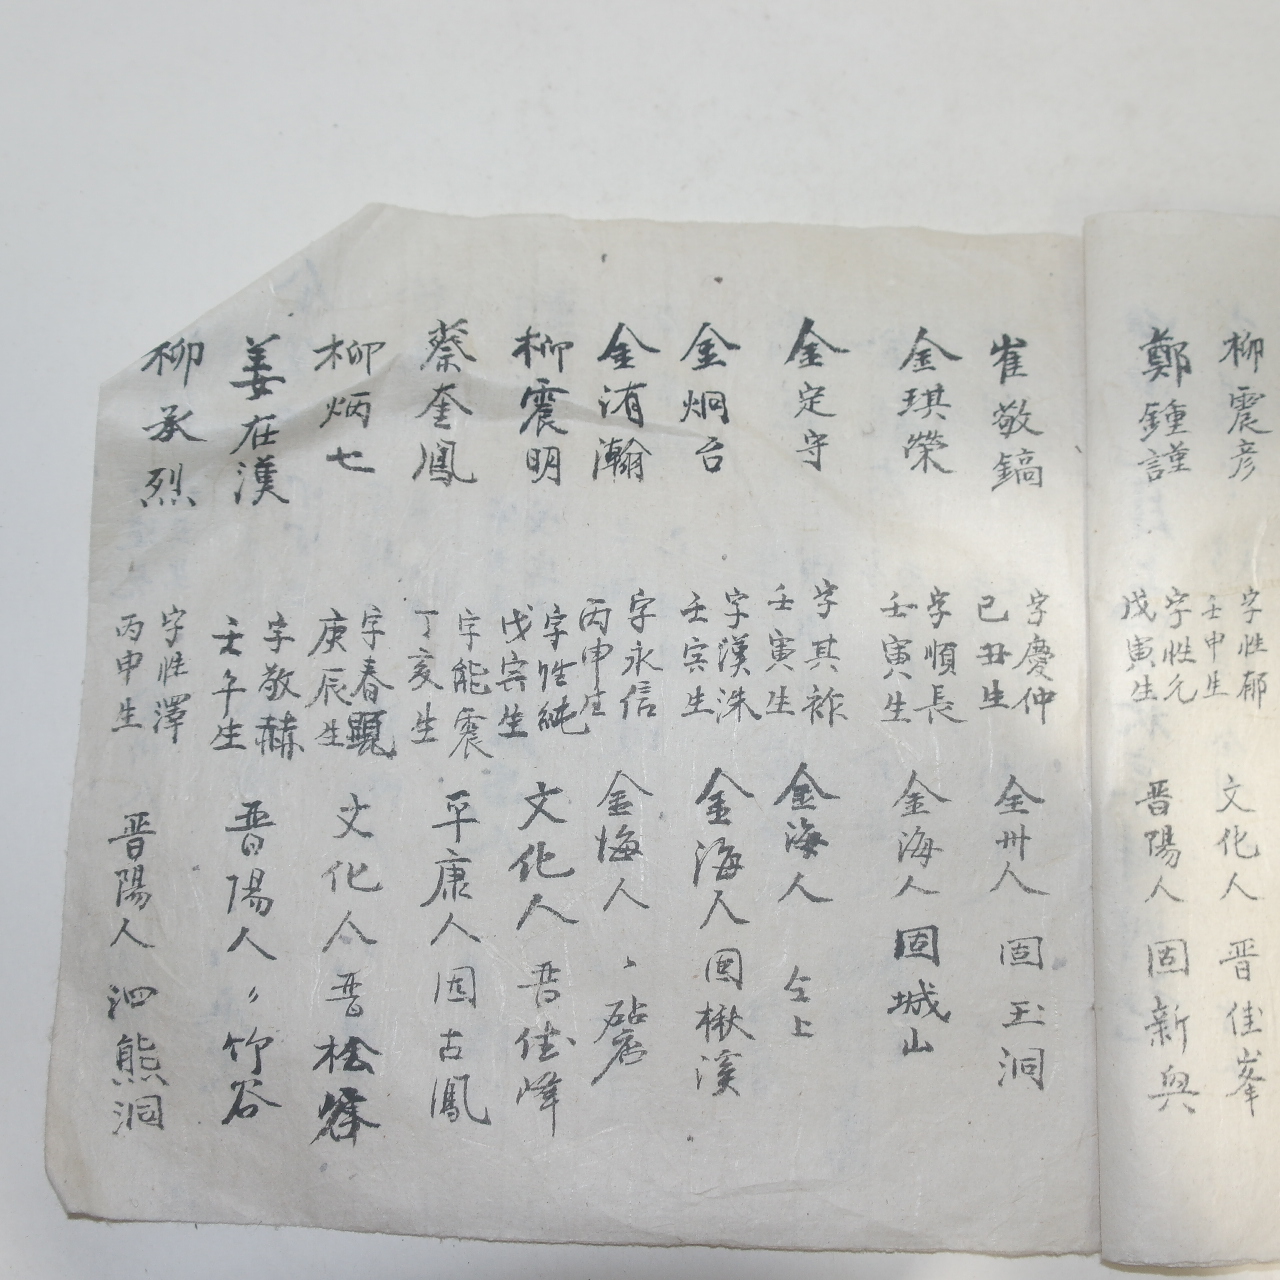 柳震彦 字性郁 壬申生 文化人 晋佳峯
鄭鍾謹 字性允 戊寅生 晋陽人 固新興
崔敬鎬 字慶仲 己丑生 全州人 固玉洞
金琪榮 字順長 壬寅生 金海人 固城山
金定守 字其祚 壬寅生 金海人 仝上
金炯台 字漢洙 壬寅生 金海人 固楸溪
金洧瀚 字永信 丙申生 金海人 〃
柳震明 字性純 戊寅生 文化人 晋佳峰
蔡奎鳳 字能震 丁亥生 平康人 固古鳳
柳炳七 字春顯 庚辰生 文化人 晋松谷
姜在漢 字敬赫 壬午生 晋陽人 〃竹谷
柳承烈 字性澤 丙申生 晋陽人 泗熊洞